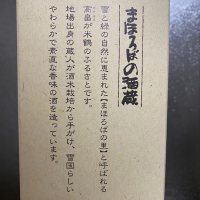 まほろばの酒蔵
雪と緑の自然に恵まれた【まほろばの里】と呼ばれる
高畠が米鶴のふるさとです。
地場出身の蔵人が酒米栽培から手がけ、雪国らしい
やわらかで素直な香味の酒を造っています。